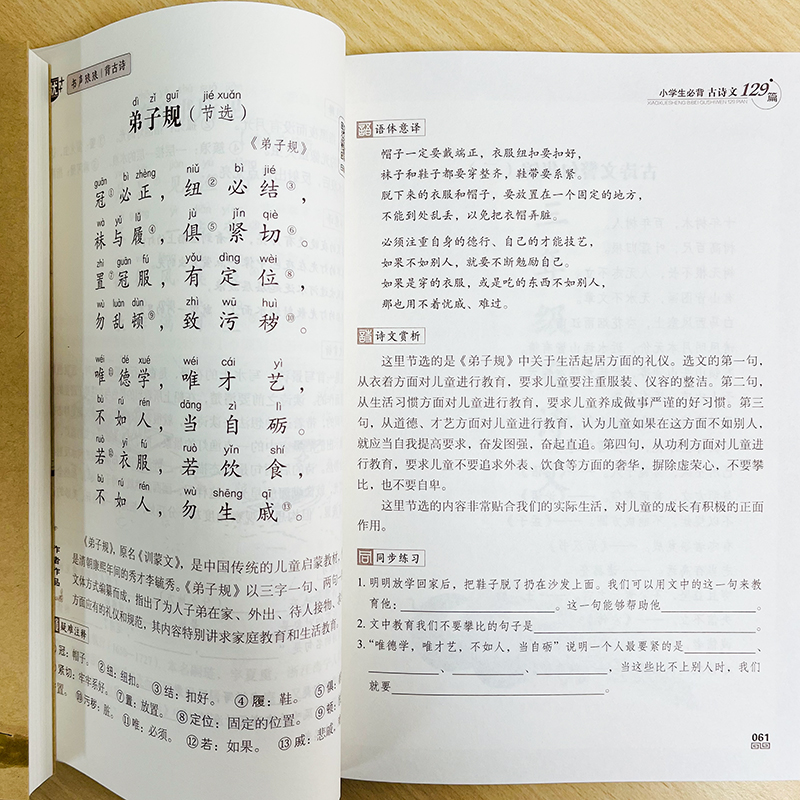 书声琅琅 | 背古诗
dì zǐ guī jié xuǎn
弟子规（节选）
《弟子规》
guān bì zhèng niǔ bì jié
冠①必正，纽②必结③，
wà yǔ lǚ jù jǐn qiè
袜与履④，俱⑤紧切⑥。
zhì guān fú yǒu dìng wèi
置⑦冠服，有定位⑧，
wù luàn dùn zhì wū huì
勿乱顿⑨，致污秽⑩。
wéi dé xué wéi cái yì
唯⑪德学，唯才艺，
bù rú rén dāng zì lì
不如人，当自砺。
ruò yī fú ruò yǐn shí
若⑫衣服，若饮食，
bù rú rén wù shēng qī
不如人，勿生戚⑬。
《弟子规》，原名《训蒙文》，是中国传统的儿童启蒙教材，
是清朝康熙年间的秀才李毓秀。《弟子规》以三字一句、两句一
文体方式编纂而成，指出了为人子弟在家、外出、待人接物、
方面应有的礼仪和规范，其内容特别讲求家庭教育和生活教育。
疑难注释
冠：帽子。 ②纽：纽扣。 ③结：扣好。 ④履：鞋。 ⑤俱：
紧切：牢牢系好。 ⑦置：放置。 ⑧定位：固定的位置。 ⑨顿：
置。 ⑩污秽：脏。 ⑪唯：必须。 ⑫若：如果。 ⑬戚：悲戚，
小学生必背 古诗文129篇
XIAOXUESHENG BIBEI GUSHIWEN 129 PIAN
语体意译
帽子一定要戴端正，衣服纽扣要扣好，
袜子和鞋子都要穿整齐，鞋带要系紧。
脱下来的衣服和帽子，要放置在一个固定的地方，
不能到处乱丢，以免把衣帽弄脏。
必须注重自身的德行、自己的才能技艺，
如果不如别人，就要不断勉励自己。
如果是穿的衣服，或是吃的东西不如别人，
那也用不着忧戚、难过。
诗文赏析
这里节选的是《弟子规》中关于生活起居方面的礼仪。选文的第一句，
从衣着方面对儿童进行教育，要求儿童要注重服装、仪容的整洁。第二句，
从生活习惯方面对儿童进行教育，要求儿童养成做事严谨的好习惯。第三
句，从道德、才艺方面对儿童进行教育，认为儿童如果在这方面不如别人，
就应当自我提高要求，奋发图强，奋起直追。第四句，从功利方面对儿童进
行教育，要求儿童不要追求外表、饮食等方面的奢华，摒除虚荣心，不要攀
比，也不要自卑。
这里节选的内容非常贴合我们的实际生活，对儿童的成长有积极的正面
作用。
同步练习
1. 明明放学回家后，把鞋子脱了扔在沙发上面。我们可以用文中的这一句来教
育他：____。这一句能够帮助他____。
2. 文中教育我们不要攀比的句子是____。
3. “唯德学，唯才艺，不如人，当自砺”说明一个人最要紧的是____、
____、____、____，当这些比不上别人时，我们
就要____。
061